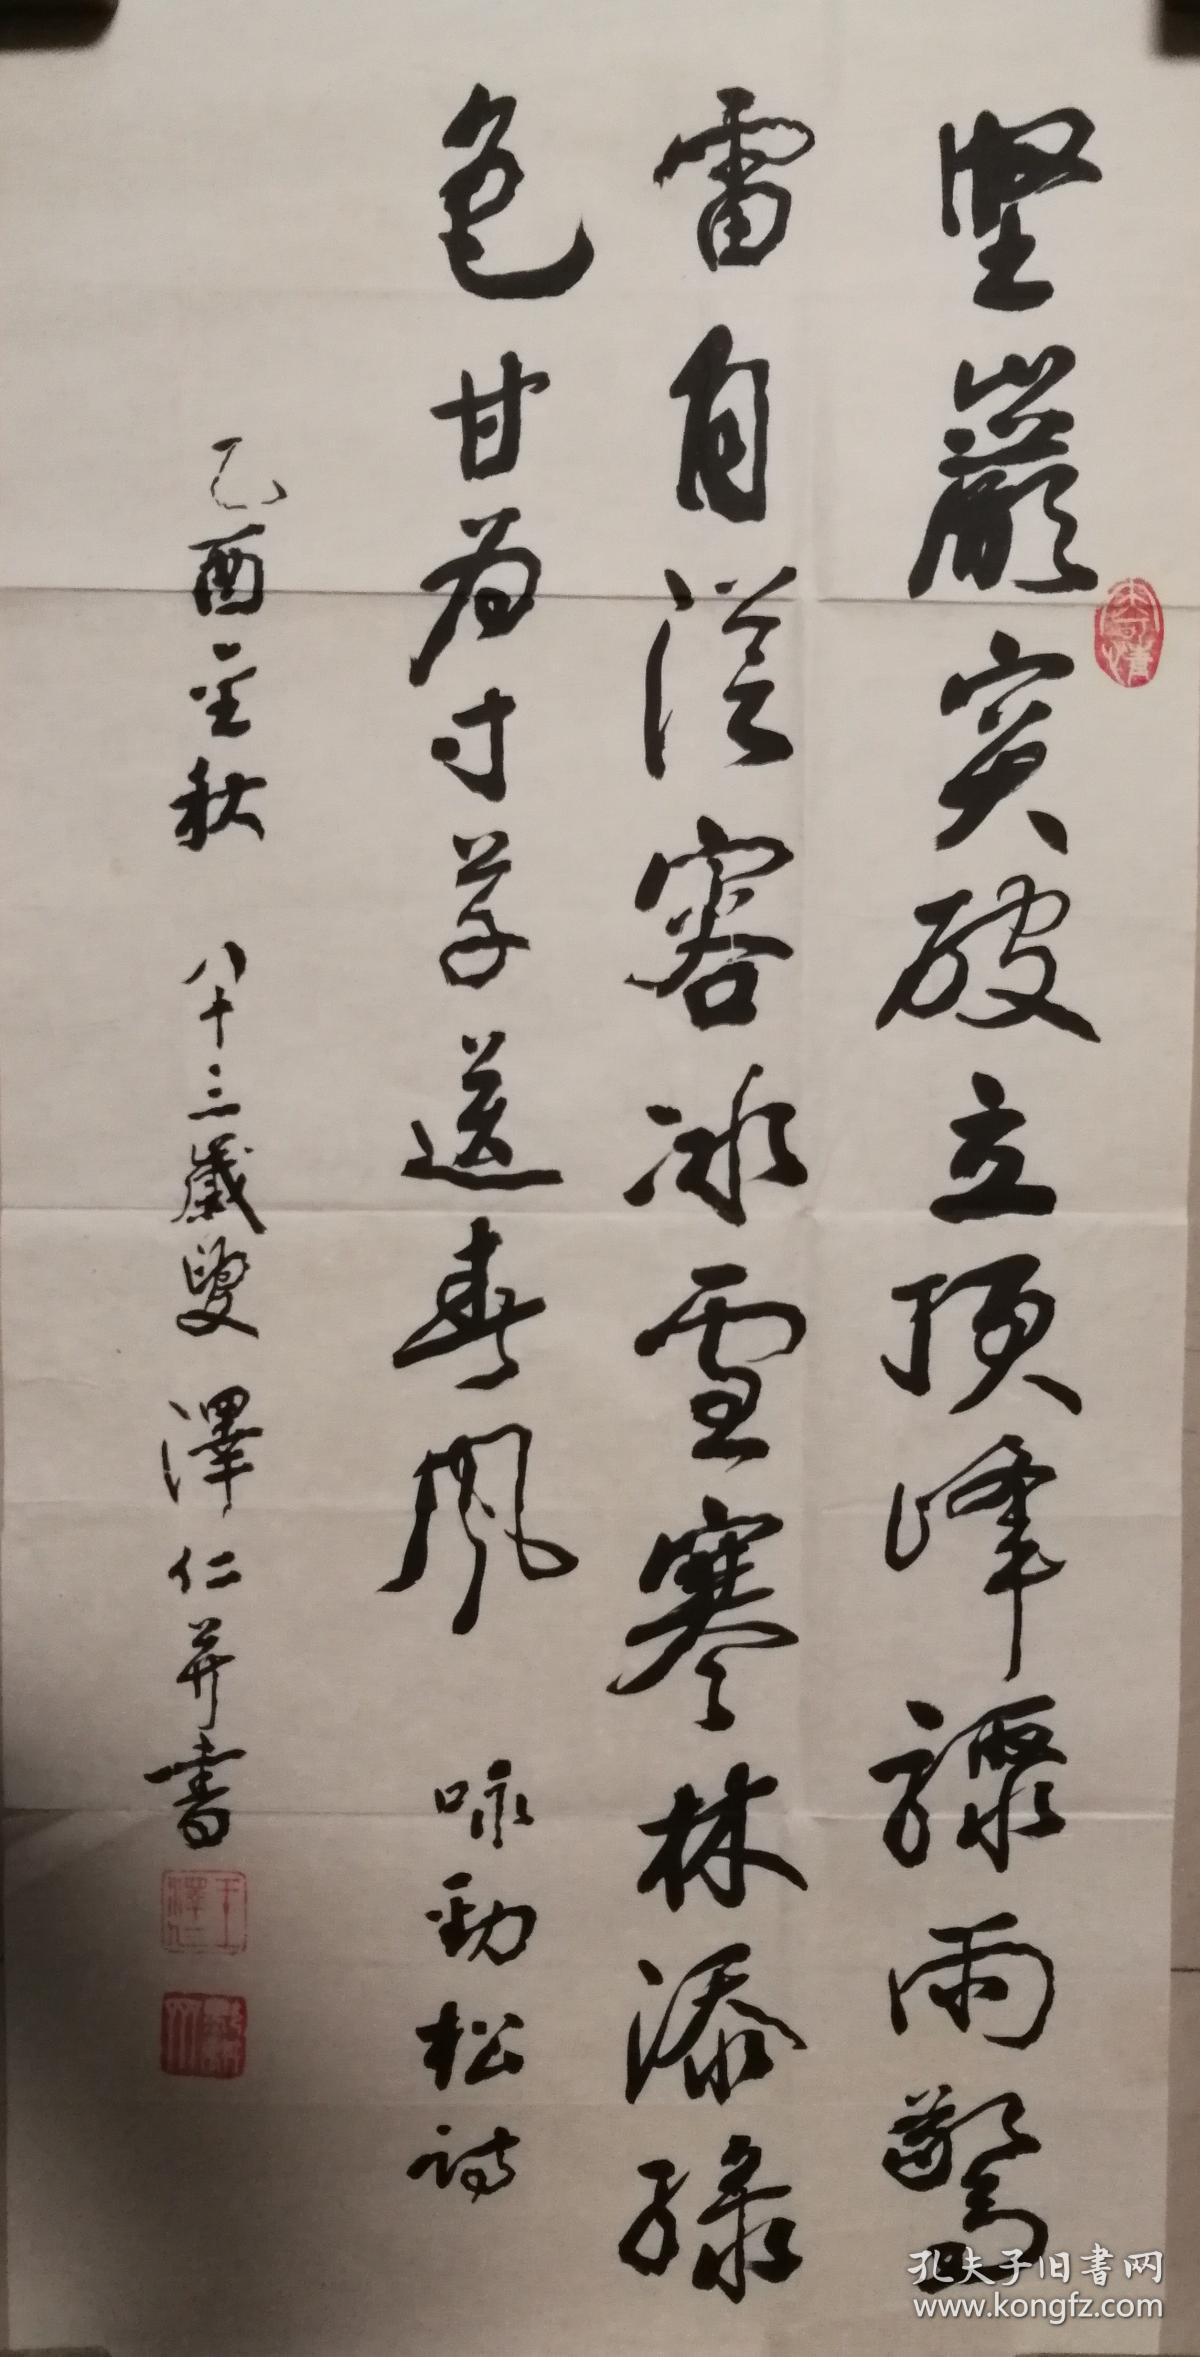 堅巖突破立頂峰驟雨驚
雷自從容冰雪寒林添綠
色甘為寸草送春風
咏勁松詩
乙酉金秋 八十三歲叟 澤仁并書
王澤仁
孔夫子旧书网
www.kongfz.com